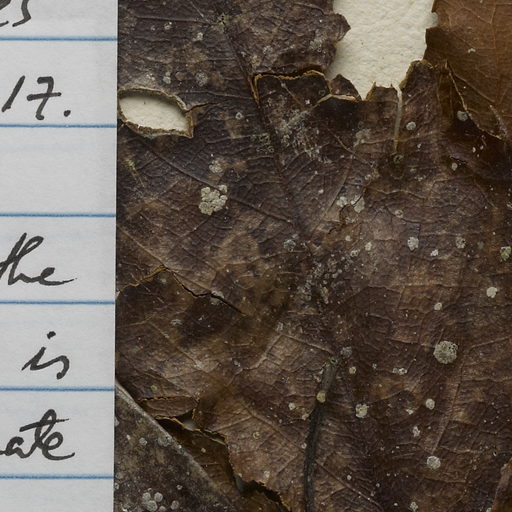 es
17.
the
is
ate